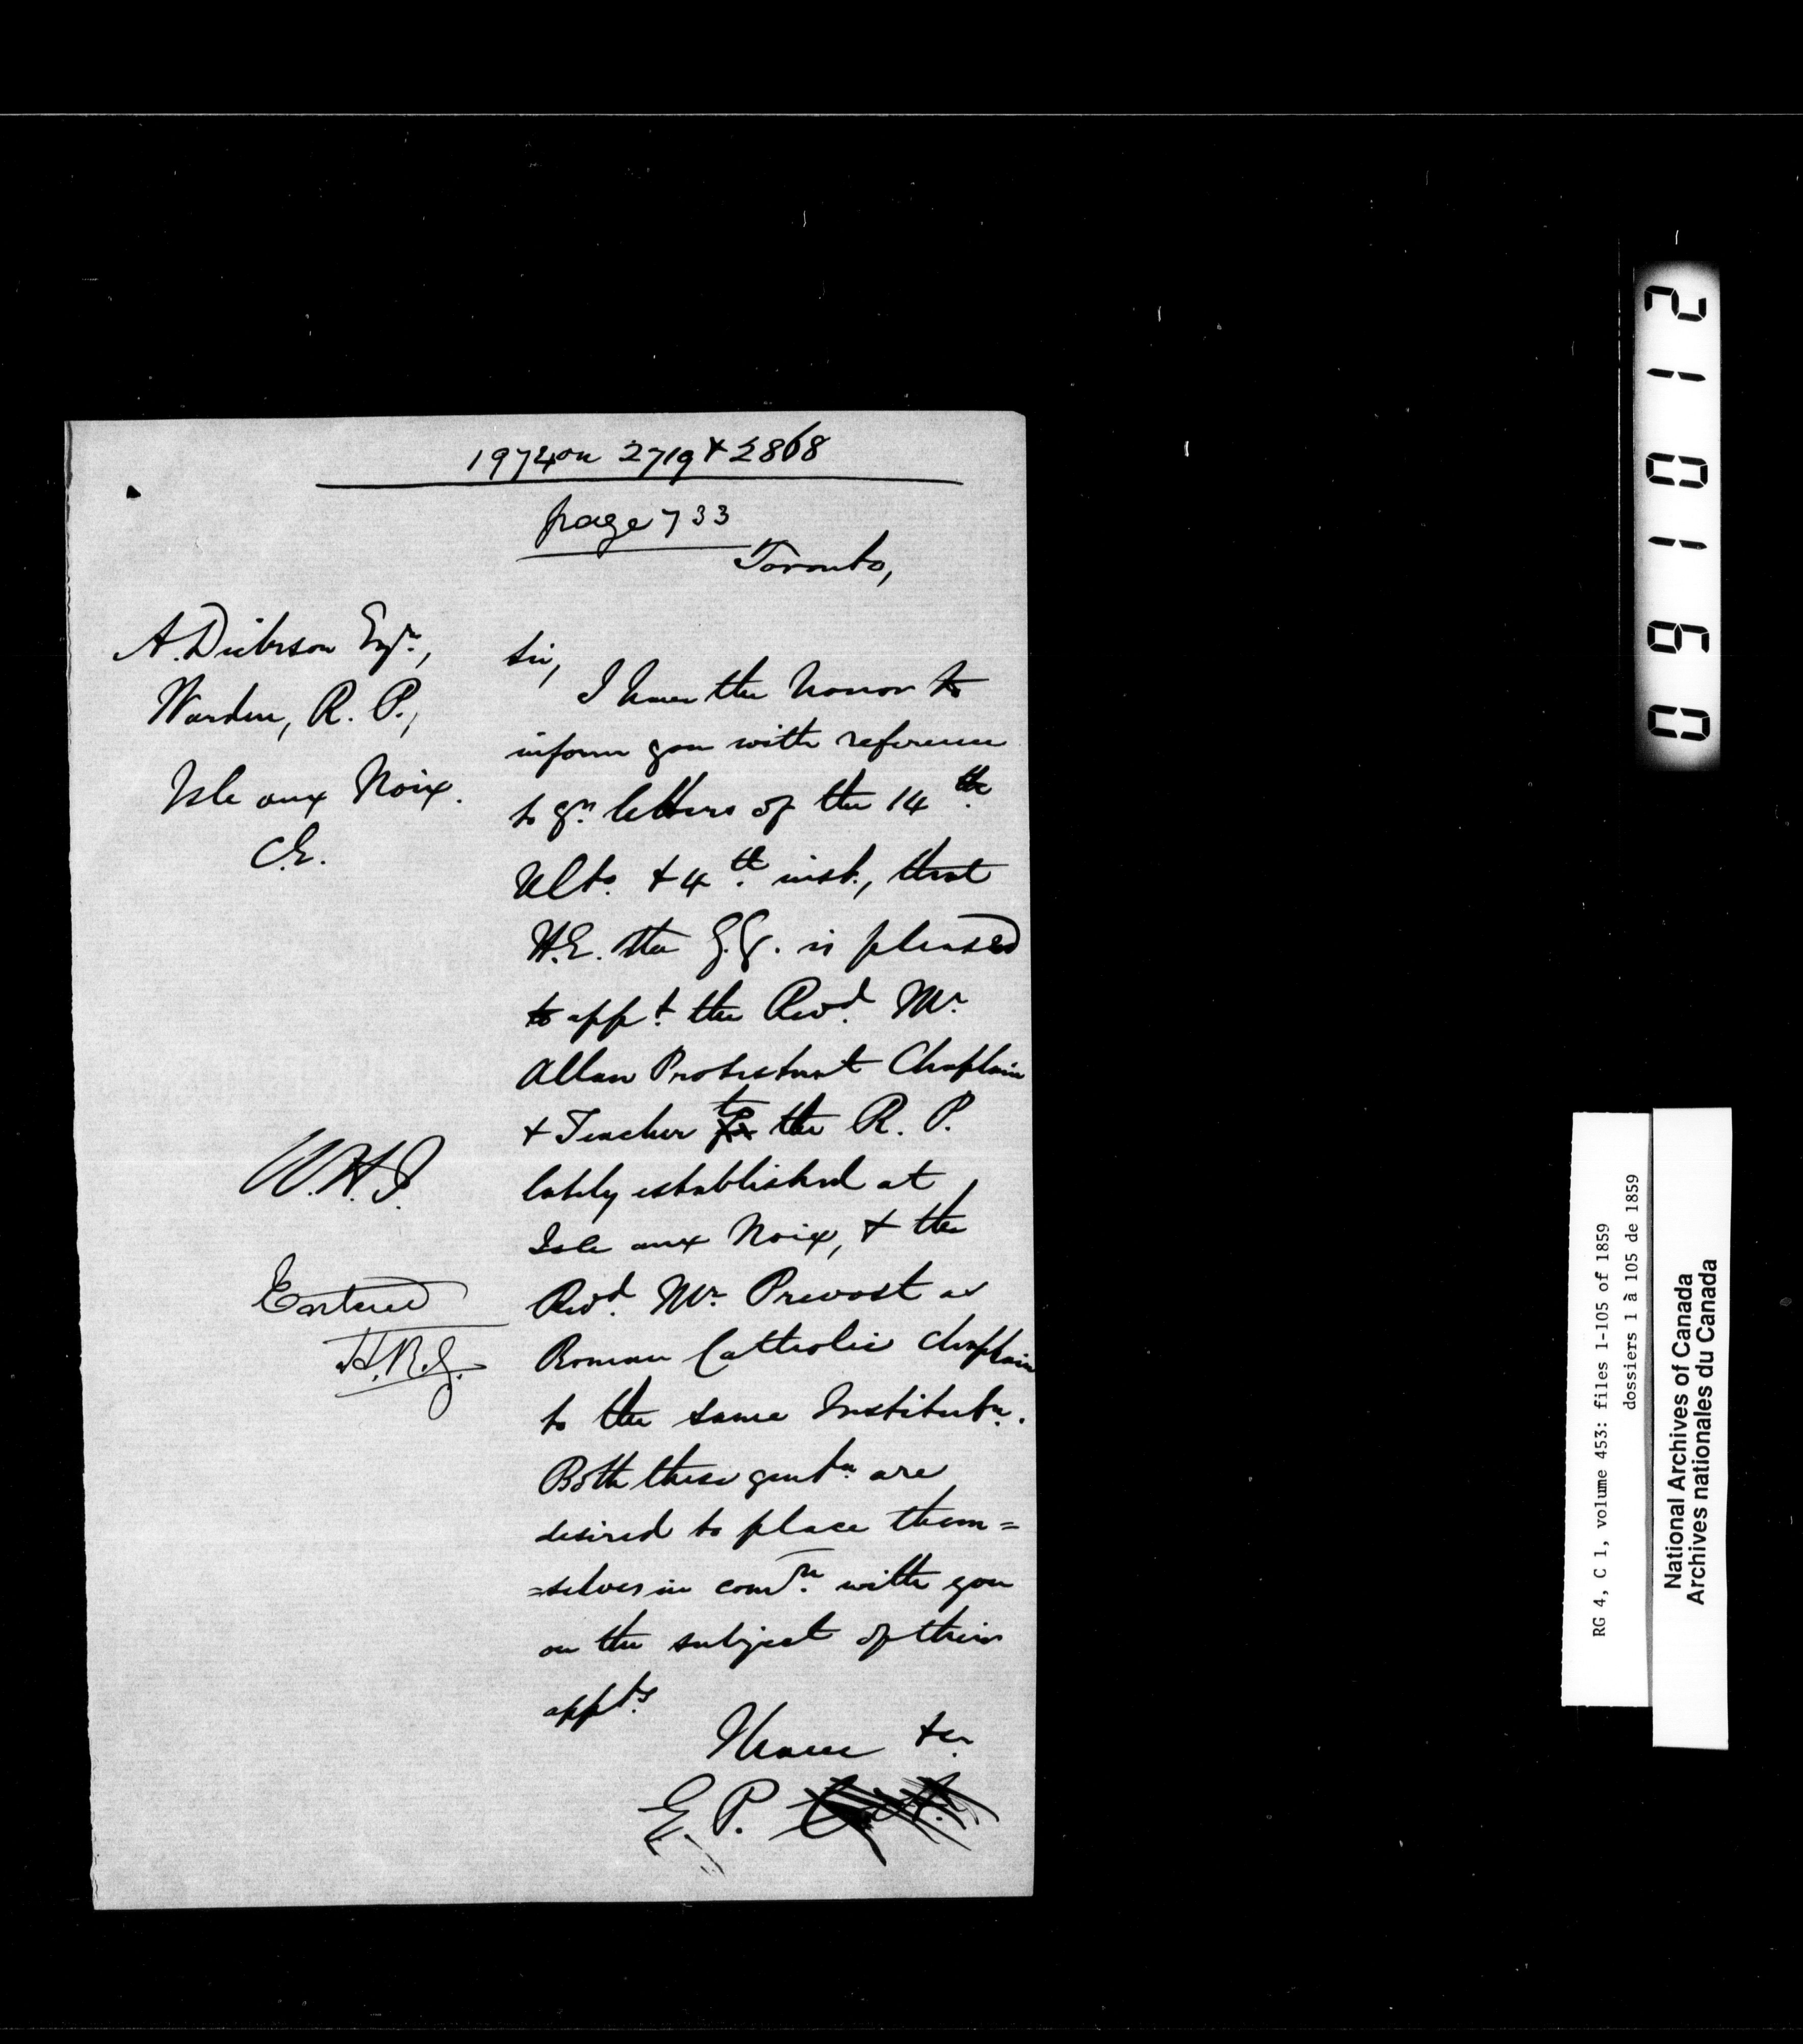 1974 on 2719 & 2868
page 733
Toronto,
A. Dickson Esqr.,
Warden, R. P.,
Isle aux Noix.
C.E.
Sir,
I have the honor to
inform you with reference
to yr. letters of the 14th
Ulto. & 4th. inst., that
H.E. the G.G. is pleased
to appt. the Revd. Mr.
Allan Protestant Chaplain
& Teacher to the R. P.
lately established at
Isle aux Noix, & the
Revd. Mr. Prevost as
Roman Catholic Chaplain
to the same Institutn.
Both these gentn. are
desired to place them=
=selves in comn. with you
on the subject of their
appts.
I have &c.
E. P.
Entered
2 1 0 1 6 0
RG 4, C 1, volume 453: files 1-105 of 1859
dossiers 1 à 105 de 1859
National Archives of Canada
Archives nationales du Canada